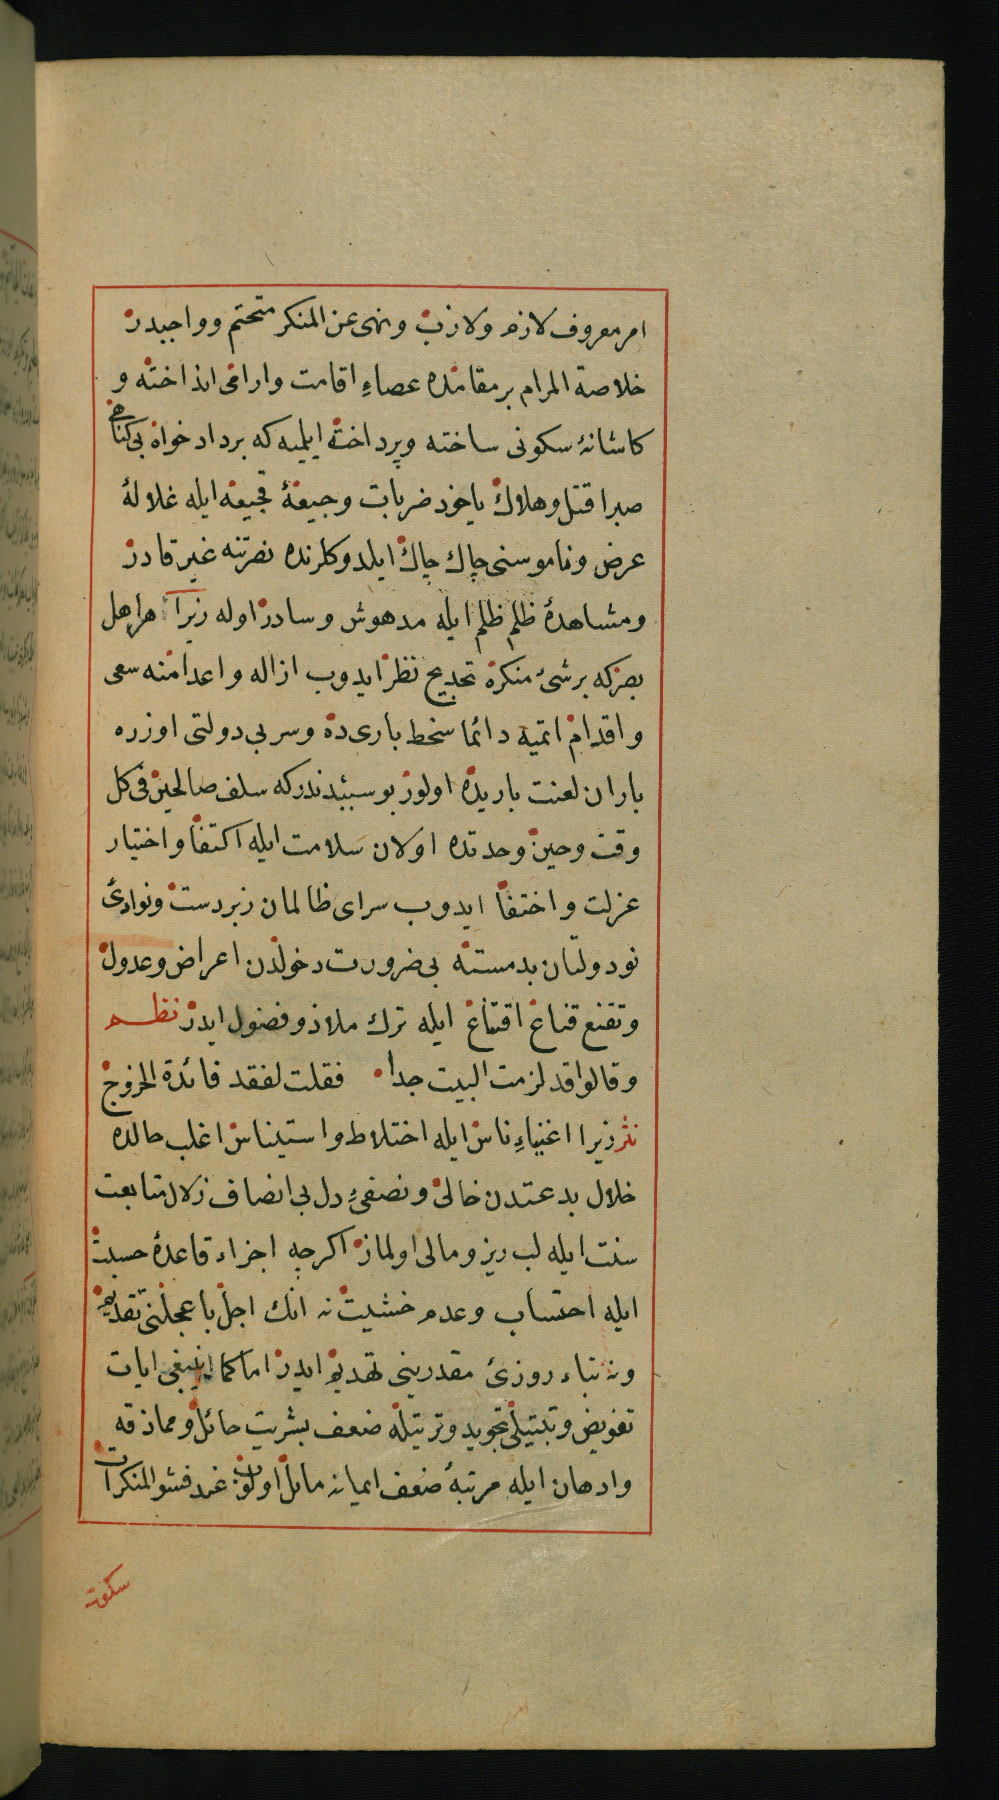 امر معروف لازم ولازب ونهى عن المنكر متحتم وواجبدر
خلاصة المرام بر مقامده عصاءِ اقامت وارامى انداخته و
كاشانهٔ سكونى ساخته وپرداخته ايليه كه بر داد خواه بى كناهى
صبرا قتل وهلاك ياخود ضربات وجيعهٔ فجيعه ايله غلالهٔ
عرض وناموسنى چاك چاك ايلدوكلرنده نصرتنه غير قادر
ومشاهدهٔ ظلم ظلم ايله مدهوش وسادر اوله زيرا هر اهل
بصر كه بر شئ منكره تحديج نظر ايدوب ازاله واعدامنه سعى
واقدام اتميه دائما سخط بارى ده وسر بى دولتى اوزره
باران لعنت باريده اولور بو سببدندر كه سلف صالحين فى كل
وقت وحين وحدتده اولان سلامت ايله اكتفا واختيار
عزلت واختفا ايدوب سراى ظالمان زبردست ونوادئ
نودولتان بدمسته بى ضرورت دخولدن اعراض وعدول
وتقنع قناع اقتناع ايله ترك ملاذ وفضول ايدر نظم
وقالوا قد لزمت البيت جدا فقلت لفقد فائدة الخروج
نثر زيرا اغنياءِ ناس ايله اختلاط واستيناس اغلب حالده
خلال بدعتدن خالى ونصفىءِ دل بى انصاف زلال متابعت
سنت ايله لب ريز ومالى اولماز اكرچه اجراء قاعدهٔ حسبت
ايله احتساب وعدم خشيت نه انك اجل باعجلنى تقديم
ونه تباء روزئ مقدرينى تهديم ايدر اما كما ينبغى ايات
تفويض وتبتيلى تجويد وترتيله ضعف بشريت حائل ومماذقه
وادهان ايله مرتبهٔ ضعف ايمانه مائل اولوب عند فشو المنكرات
سكوت